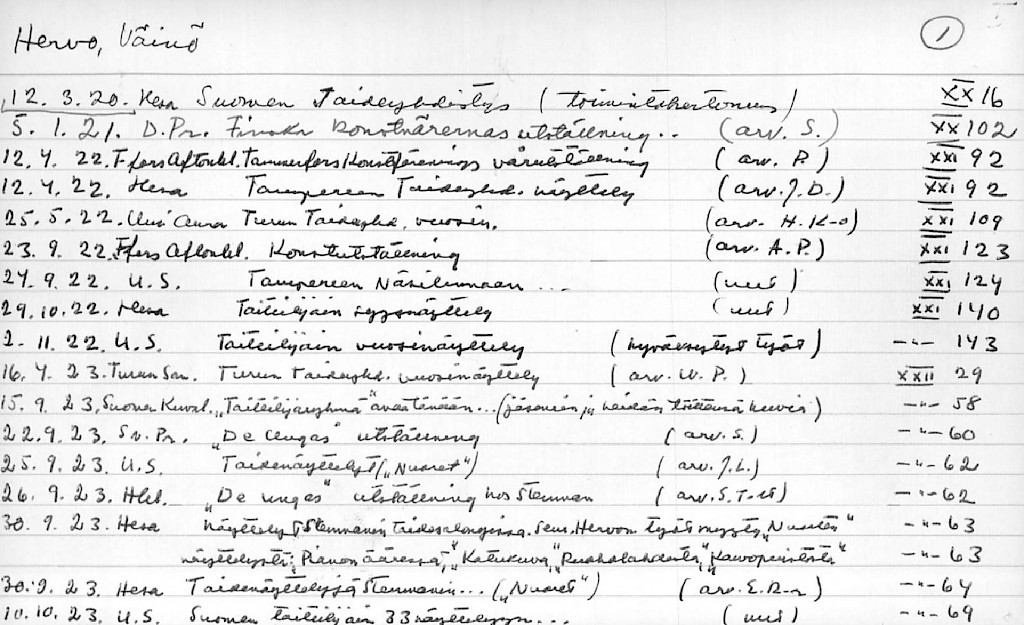 Hervo, Väinö 1
12. 3. 20. Hesa Suomen Taideyhdistys (toimintakertomus) XX 16
5. 1. 21. D. Pr. Finska konstnärernas utställning.. (arv. S.) XX 102
12. 4. 22. H:fors Aftonbl. Tammerfors Konstförenings vårutställning (arv. P.) XXI 92
12. 4. 22. Hesa Tampereen Taideyhd. näyttely (arv. J. D.) XXI 92
25. 5. 22. Uusi Aura Turun Taideyhd. vuosin. (arv. H. K-o) XXI 109
23. 9. 22. H:fors Aftonbl. Konstutställning (arv. A. P.) XXI 123
24. 9. 22. U. S. Tampereen Näsilinnaan ... (uut) XXI 124
29. 10. 22. Hesa Taiteilijain syysnäyttely (uut) XXI 140
2. 11. 22. U. S. Taiteilijain vuosinäyttely (hyväksytyt työt) -"- 143
16. 4. 23. Turun San. Turun Taideyhd. vuosinäyttely (arv. W. P.) XXII 29
15. 9. 23, Suomen Kuval. "Taiteilijaryhmä" avattänään... (jäsenien ja heidän töittensä kuvia) -"- 58
22. 9. 23. Sv. Pr. "De Ungas" utställning (arv. S.) -"- 60
25. 9. 23. U. S. Taidenäyttelyt ("Nuoret") (arv. J. L.) -"- 62
26. 9. 23. Hbl. "De ungas" utställning hos Stenman (arv. S. T-st) -"- 62
30. 9. 23. Hesa Näyttelyt Stenmanin taidesalongissa. Seur. Hervon työt myyty "Nuorten"
-"- 63
näyttelystä: "Pianon ääressä", "Katukuva", "Ruoholahdesta", "Kaivopuistosta" -"- 63
30. 9. 23 Hesa Taidenäyttelyssä Stenmanin... ("Nuoret") (arv. E. R-r) -"- 64
10. 10. 23. U. S. Suomen taiteilijain 33 näyttelyyn... (uut) -"- 69